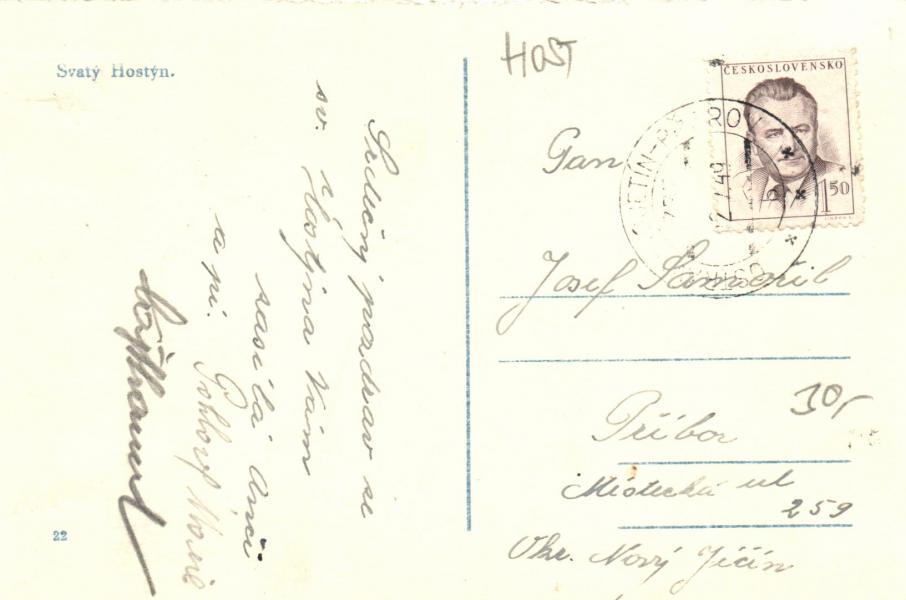 Svatý Hostýn.
Srdečný pozdrav ze
sv. Hostýna Vám
zasílá Anči
a pí.
Marie
22
HOST
ČESKOSLOVENSKO
1 50
Pan
Josef
30,-
Příbor
Místecká ul
259
Okr. Nový Jičín